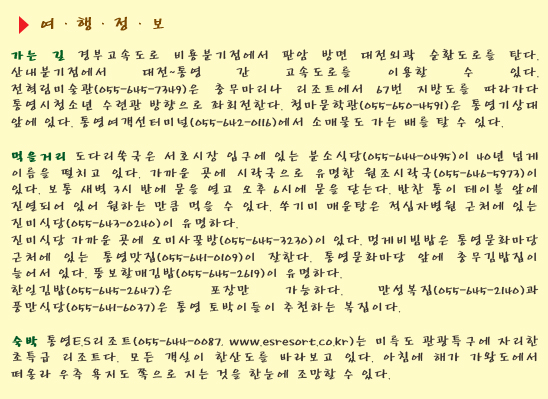 여·행·정·보
가는 길 경부고속도로 비룡분기점에서 판암 방면 대전외곽 순환도로를 탄다.
산내분기점에서 대전~통영 간 고속도로를 이용할 수 있다.
전혁림미술관(055-645-7349)은 충무마리나 리조트에서 67번 지방도를 따라가다
통영시청소년 수련관 방향으로 좌회전한다. 청마문학관(055-650-4591)은 통영기상대
앞에 있다. 통영여객선터미널(055-642-0116)에서 소매물도 가는 배를 탈 수 있다.
먹을거리 도다리쑥국은 서호시장 입구에 있는 분소식당(055-644-0495)이 40년 넘게
이름을 떨치고 있다. 가까운 곳에 시락국으로 유명한 원조시락국(055-646-5973)이
있다. 보통 새벽 3시 반에 문을 열고 오후 6시에 문을 닫는다. 반찬 통이 테이블 앞에
진열되어 있어 원하는 만큼 먹을 수 있다. 쑤기미 매운탕은 적십자병원 근처에 있는
진미식당(055-643-0240)이 유명하다.
진미식당 가까운 곳에 오미사꿀방(055-645-3230)이 있다. 멍게비빔밥은 통영문화마당
근처에 있는 통영맛집(055-641-0109)이 잘한다. 통영문화마당 앞에 충무김밥집이
늘어서 있다. 뚱보할매김밥(055-645-2619)이 유명하다.
한일김밥(055-645-2647)은 포장만 가능하다. 만성복집(055-645-2140)과
풍만식당(055-641-6037)은 통영 토박이들이 추천하는 복집이다.
숙박 통영E.S리조트(055-644-0087. www.esresort.co.kr)는 미륵도 관광특구에 자리한
초특급 리조트다. 모든 객실이 한산도를 바라보고 있다. 아침에 해가 가왕도에서
떠올라 우측 욕지도 쪽으로 지는 것을 한눈에 조망할 수 있다.